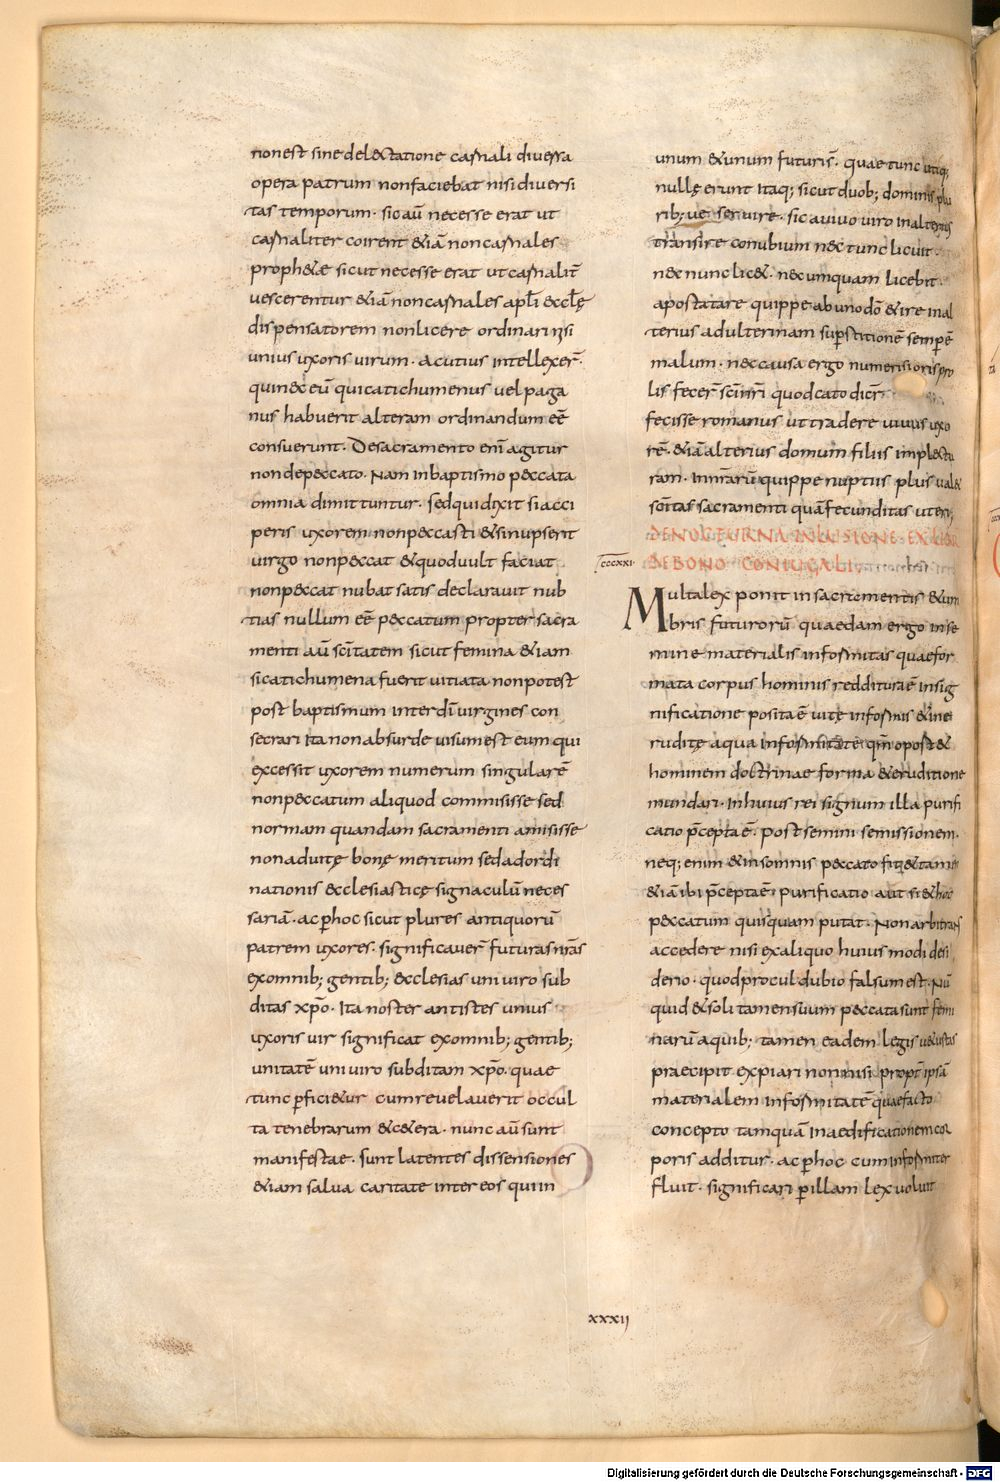 nonest sine delectatione carnali diversa
opera patrum nonfaciebat nisi diversi
tas temporum· sic aū necesse erat ut
carnaliter coirent &iā non carnales
proph&æ sicut necesse erat ut carnalit̄
vescerentur &iā non carnales apl̄i eccl̄ę
dispensatorem non licere ordinari nisi
unius uxoris virum· acutius intellexer̄·
qui nec eū qui catichumenus vel paga
nus habuerit alteram ordinandum eē
consuerunt· De sacramento enī agitur
non de peccato· Nam in baptismo peccata
omnia dimittuntur· sed qui dixit si acci
peris uxorem non peccasti & si nupserit
virgo non peccat & quod vult faciat
non peccat nubat satis declaravit nub
tias nullum eē peccatum propter sacra
menti aū scītatem sicut femina &iam
si catichumena fuerit vitiata non potest
post baptismum inter dī virgines con
secrari ita non absurde visum est eum qui
excessit uxorem numerum singularē
non peccatum aliquod commisisse sed
normam quandam sacramenti amisisse
non ad vitę bonę meritum sed ad ordi
nationis ecclesiasticę signaculū neces
sariā· ac p̄hoc sicut plures antiquorū
patrem uxores· significaver̄ futuras nrās
ex omnib; gentib; ecclesias uni viro sub
ditas xp̄o· Ita noster antistes unius
uxoris vir significat ex omnib; gentib;
unitatē uni viro subditam xp̄o· quae
tunc p̄fici&ur cum revelaverit occul
ta tenebrarum &c&era· nunc aū sunt
manifestae· sunt latentes dissensiones
&iam salva caritate inter eos qui in
unum & unum futuris̄· quae tunc utiq;
nullę erunt Itaq; sicut duob; dominis plu
rib; ve servire· sic a vivo viro in alterius
transire conubium nec tunc licuit·
nec nunc lic&· nec umquam licebit·
apostatare quippe ab uno dō & ire in al
terius adulterinam sup̄stitionē semp̄ ē
malum· nec causa ergo numerisioris pro
lis fecer̄ scī nr̄i quod cato dicr̄
fecisse romanus ut tradere vivus uxo
rē· &iā alterius domum filiis implectu
ram· In nr̄arū quippe nuptiis plus val&
scītas sacramenti quā fecunditas uteri;
DE NOCTURNA INLUSIONE· EX LIBR
DE BONO CONIUGALI
ccccxxi·
Multa lex ponit in sacramentis & um
bris futurorū quaedam ergo in se
mine materialis informitas quae for
mata corpus hominis redditura ē in sig
nificatione posita ē vitę informis & ine
ruditę a qua informitate qm̄ oport&
hominem doctrinae forma & eruditione
mundari· In huius rei signum illa purifi
catio p̄cepta ē· post semini semissionem·
neq; enim & in somnis peccato fit & tame
&iā ibi p̄cepta ē· purificatio aut si & hoc
peccatum quisquam putat· Non arbitrans
accedere nisi ex aliquo huius modi desi
derio· quod procul dubio falsum est· Nū
quid & soli tamen suum peccata sunt femi
narū a quib; tamen eadem legis vetustas
praecipit expiari non nisi propt̄ ipsā
materialem informitatē quae facto
concepto tamquā in aedificationem cor
poris additur· ac p̄hoc cum informiter
fluit· significari p̄ illam lex voluit
xxxij
Digitalisierung gefördert durch die Deutsche Forschungsgemeinschaft - DFG